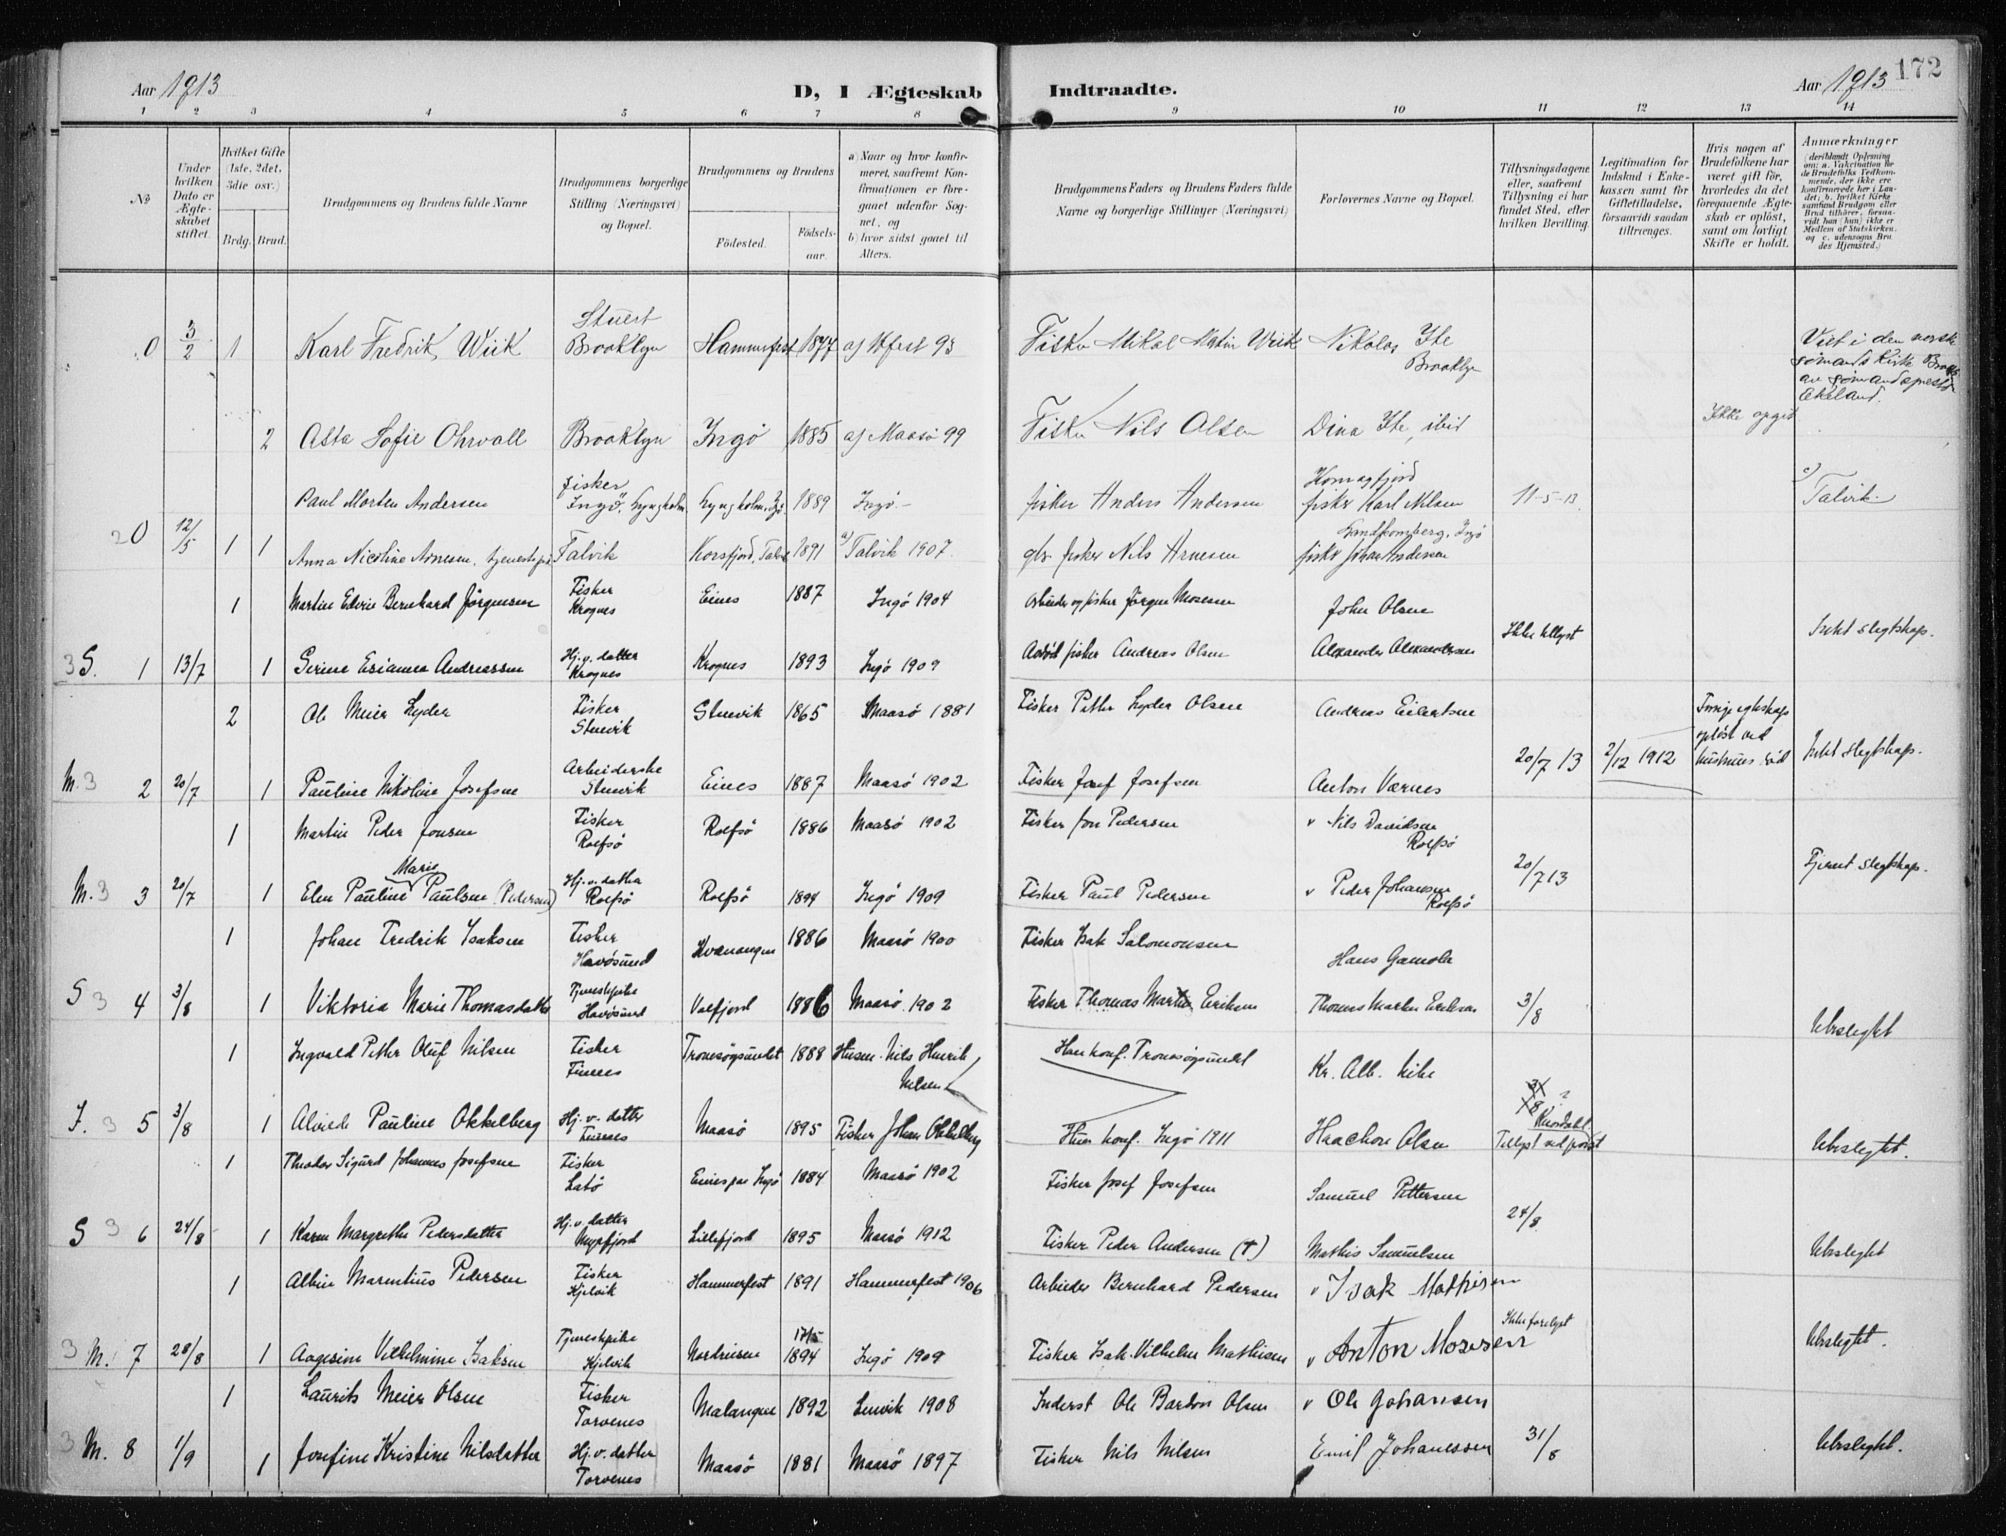 172
Aar 1913
D, I Ægteskab Indtraadte.
Aar 1913
1 2 3 4 5 6 7 8 9 10 11 12 13 14
No
Under hvilken Dato er Ægteskabet stiftet.
Hvilket Gifte (1ste, 2det, 3die osv.)
Brdg. Brud.
Brudgommens og Brudens fulde Navne
Brudgommens borgerlige Stilling (Næringsvei) og Bopæl.
Brudgommens og Brudens
Fødested.
Fødselsaar.
a) Naar og hvor konfirmeret, saafremt Konfirmationen er foregaaet udenfor Sognet, og
b) hvor sidst gaaet til Alters.
Brudgommens Faders og Brudens Faders fulde Navne og borgerlige Stillinger (Næringsvei)
Forlovernes Navne og Bopæl.
Tillysningsdagene eller, saafremt Tillysning ei har fundet Sted, efter hvilken Bevilling.
Legitimation for Indskud i Enkekassen samt for Giftetilladelse, forsaavidt saadan tiltrænges.
Hvis nogen af Brudefolkene har været gift før, hvorledes da det foregaaende Ægteskab er opløst, samt om lovligt Skifte er holdt.
Anmærkninger
0 3/2 1 Karl Fredrik Wiik Stuert Brooklyn Hammerfest 1877 a) Hfest 93 Fisker Mikal Martin Wiik Nikolas Ite Brooklyn Viet i den norske sømandskirke
2 Asta Sofie Ohrvall Brooklyn Ingø 1885 a) Maasø 99 Fisker Nils Olsen Dina Ite, ibid Ikke opgid
Paul Morten Andersen fisker Ingø, Lyngholm Lyngholm, Ingø 1889 Ingø - fisker Anders Andersen Komagfjord fisker Karl Nilsen 11-5-13 c) Talvik
20 12/5 1 1 Anna Nicoline Arnesen, tjenestepi Talvik Korsfjord, Talvik 1891 a) Talvik 1907 fisker Nils Arnesen fisker Johan Andersen
1 Martin Edvin Bernhard Jörgensen Fisker Krognes Eines 1887 Ingø 1904 Arbeider og fisker Jörgen Mosesen John Olsen
3 S. 1 13/7 1 Serine Esianna Andreassen Hj. v. datter Krognes Krognes 1893 Ingø 1909 fisker Andreas Olsen Alexander Alexandersen Ikke tillyst Intet slegtskap.
2 Ole Meier Lyder Fisker Stuevik Stuevik 1865 Maasø 1881 Fisker Petter Lyder Olsen Andreas Eilertsen
M. 3 2 20/7 1 Pauline Nikoline Josefsen Arbeiderske Stuevik Eines 1887 Maasø 1902 Fisker Josef Josefsen Anton Værnes 20/7 13 2/12 1912 Forrige egteskap opløst ved hustruens død Intet slegtskap.
1 Martin Peder Jonsen Fisker Rolfsø Rolfsø 1886 Maasø 1902 Fisker Jon Pedersen " Nils Davidsen Rolfsø
M. 3 3 20/7 1 Elen Pauline Marie Paulsen (Pedersen) Hj. v. datter Rolfsø Rolfsø 1894 Ingø 1909 Fisker Paul Pedersen " Peder Johansen Rolfsø 20/7 13 Fjernt slegtskap.
1 Johan Fredrik Isaksen Fisker Havøsund Kvænangen 1886 Maasø 1900 Fisker Isak Salomonsen Hans Gamola
S 3 4 3/8 1 Viktoria Marie Thomasdatter Tjenestepike Havøsund 1886 Maasø 1902 Fisker Thomas Martin Eriksen Thomas Martin Eriksen 3/8 Ubeslegtet
1 Ingvald Petter Oluf Nilsen Fisker Finnes Tromsøysundet 1888 Husm. Nils Henrik Nilsen Han konf. Tromsøysundet Kr. Alb. Mike
F. 3 5 3/8 1 Alvilde Pauline Okkelberg Hj. v. datter Finnes Maasø 1895 Fisker Johan Okkelberg Hun konf. Ingø 1911 Haachon Olsen 3/8 ? Tillyst ved Ubeslegtet.
1 Theodor Sigurd Johannes Josefsen Fisker Latø Eines paa Ingø 1884 Maasø 1902 Fisker Josef Josefsen Samuel Pettersen
S 3 6 24/8 1 Karen Margrethe Pedersdatter Hj. v. datter Myrfjord Lillefjord 1895 Maasø 1912 Fisker Peder Andersen (†) Mathis Samuelsen 24/8 Ubeslegtet
1 Albin Marentius Pedersen Fisker Kjelvik Hammerfest 1891 Hammerfest 1906 Arbeider Bernhard Pedersen " Isak Mathisen
3 M. 7 28/8 1 Aagesine Vilhelmine Isaksen Tjenestepike Kjelvik Nordreisen 1894 Ingø 1909 Fisker Isak Vilhelm Mathisen " Anton Mosesen Ikke forelyst Ubeslegtet.
1 Laurits Meier Olsen Fisker Torvenes Malangen 1892 Lenvik 1908 Inderst Ole Bardon Olsen " Ole Johansen
3 M. 8 1/9 1 Josefine Kristine Nilsdatter Hj. v. datter Torvenes Maasø 1881 Maasø 1897 Fisker Nils Nilsen Emil Johanessen 31/8 Ubeslegtet.